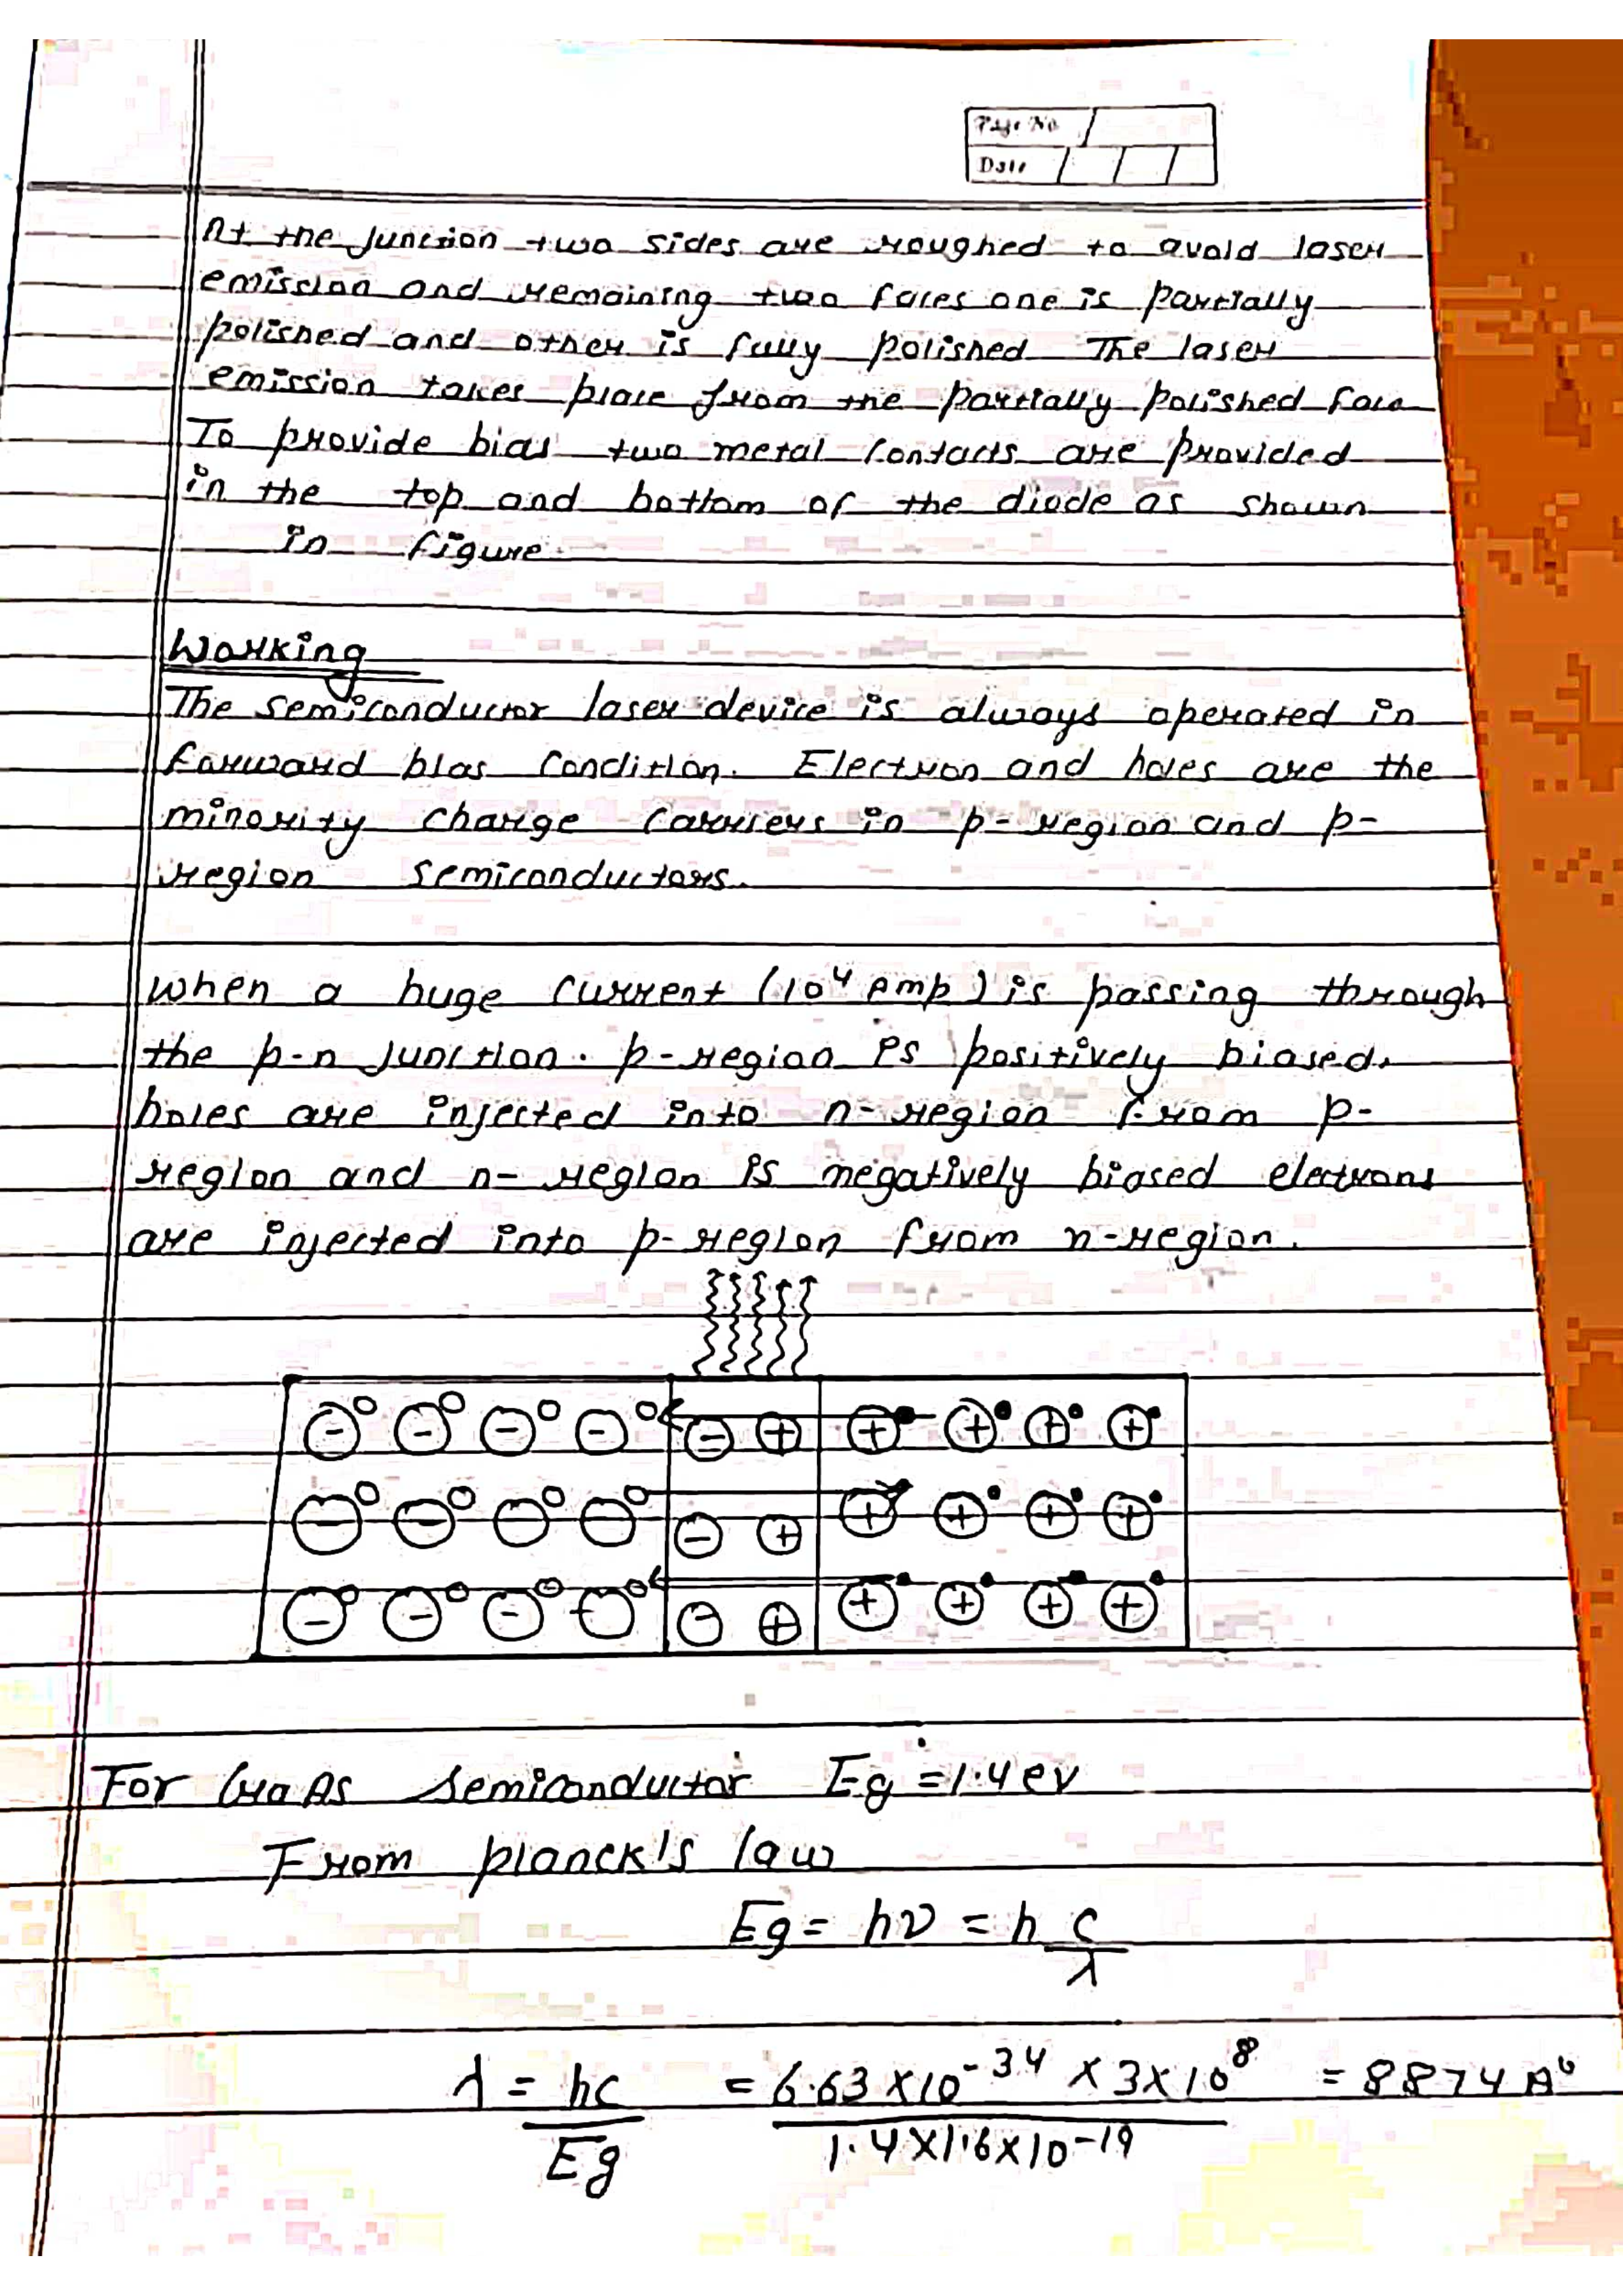 Page No
Date
At the junction two sides are roughed to avoid laser
emission and remaining two faces one is partially
polished and other is fully polished The laser
emission takes place from the partially polished face
To provide bias two metal contacts are provided
in the top and bottom of the diode as shown
in figure
Working
The semiconductor laser device is always operated in
forward bias condition. Electron and holes are the
minority charge carriers in p-region and p-
region semiconductors.
when a huge current (10⁴ Amp) is passing through
the p-n junction. p-region is positively biased.
holes are injected into n-region from p-
region and n- region is negatively biased electrons
are injected into p-region from n-region.
- - - - - +  + + + +
- - - - - +  + + + +
- - - + - +  + + + +
For GaAs semiconductor Eg = 1.4 ev
From planck's law
Eg = hν = h c/λ
λ = hc/Eg = 6.63 × 10⁻³⁴ × 3 × 10⁸ / 1.4 × 1.6 × 10⁻¹⁹ = 8874 A°